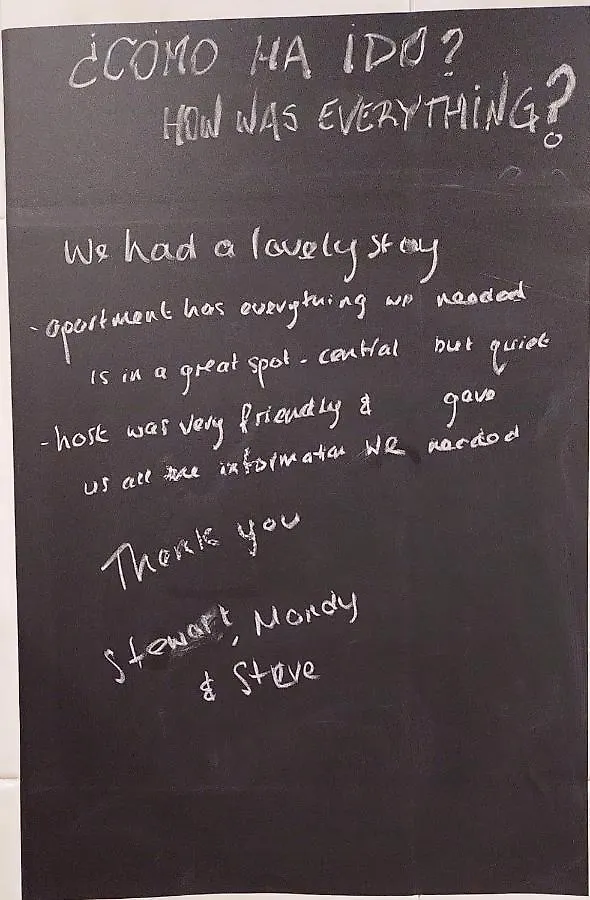 ¿CÓMO HA IDO?
HOW WAS EVERYTHING?
We had a lovely stay
- apartment has everything we needed
is in a great spot - central but quiet
- host was very friendly & gave
us all the information we needed
Thank you
Stewart, Mandy
& Steve